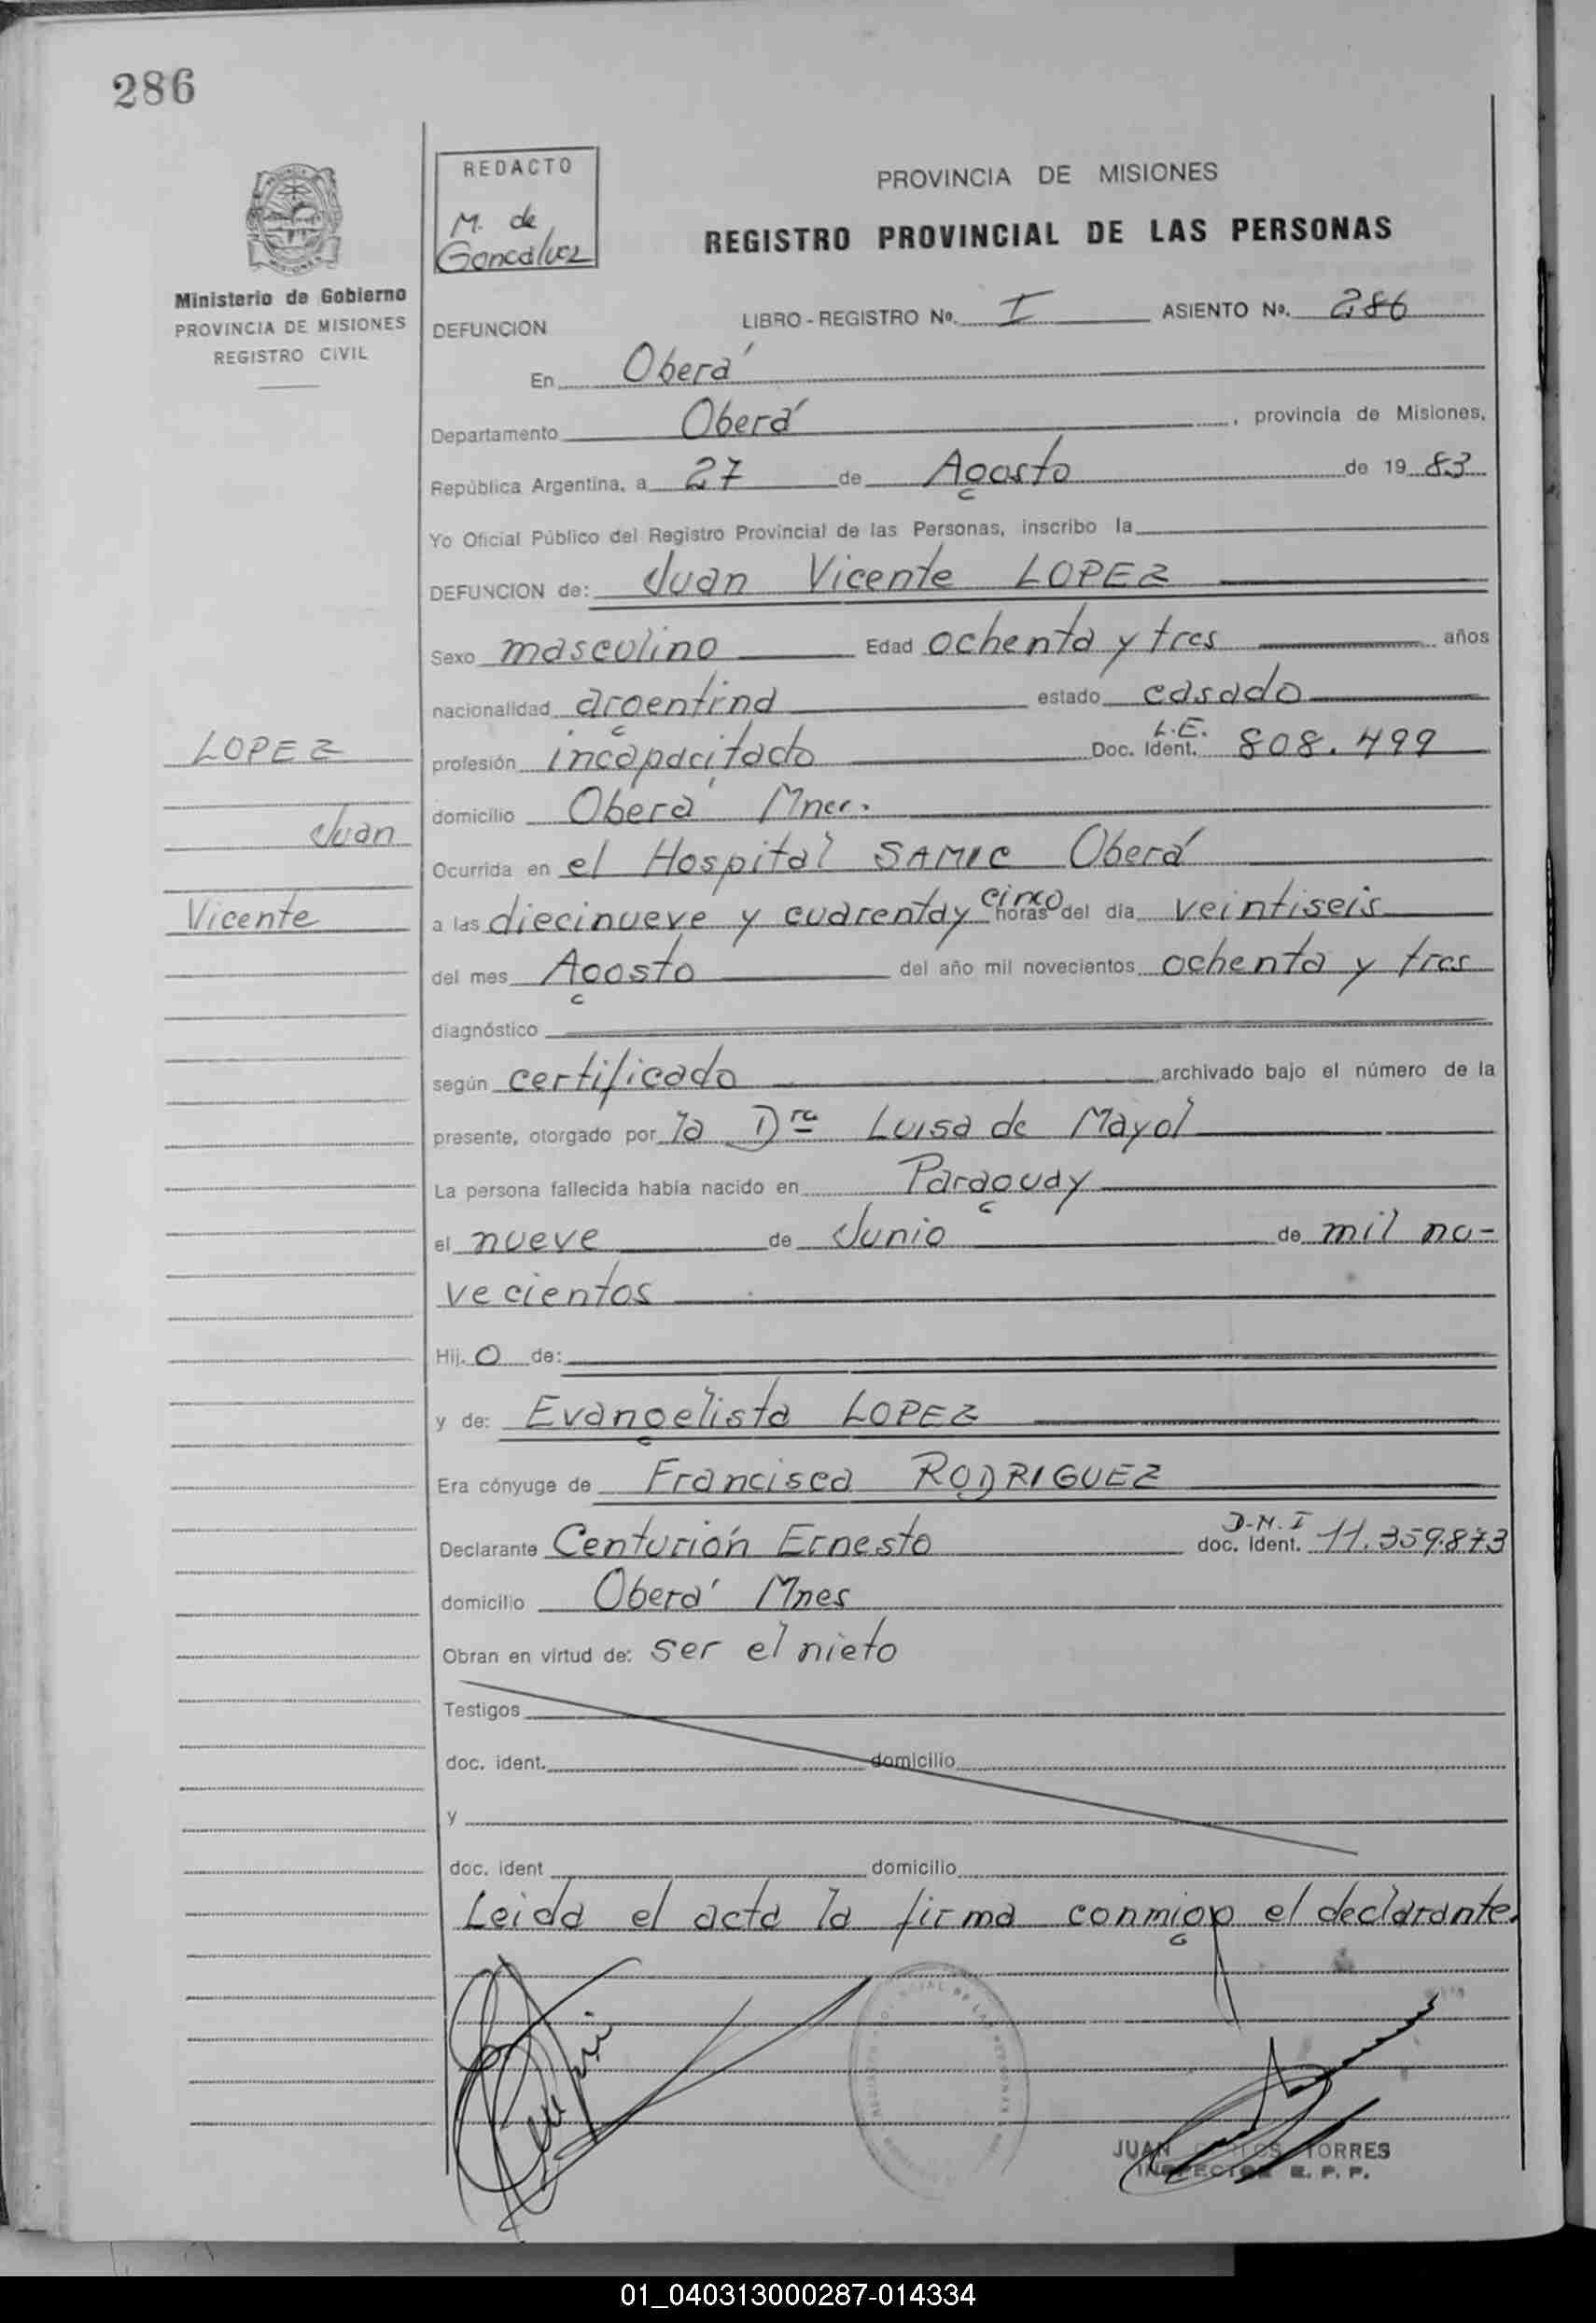 286
REDACTO
M. de
Goncalvez
PROVINCIA DE MISIONES
REGISTRO PROVINCIAL DE LAS PERSONAS
Ministerio de Gobierno
PROVINCIA DE MISIONES
REGISTRO CIVIL
DEFUNCION LIBRO - REGISTRO No. I ASIENTO No. 286
En Oberá
Departamento Oberá, provincia de Misiones,
República Argentina, a 27 de Agosto de 1983
Yo Oficial Público del Registro Provincial de las Personas, inscribo la
DEFUNCION de: Juan Vicente LOPEZ
Sexo masculino Edad ochenta y tres años
nacionalidad argentina estado casado
LOPEZ
Juan
Vicente
profesión incapacitado Doc. Ident. L.E. 808.499
domicilio Oberá Mnes.
Ocurrida en el Hospital SAMIC Oberá
a las diecinueve y cuarenta y cinco horas del día veintiseis
del mes Agosto del año mil novecientos ochenta y tres
diagnóstico
según certificado archivado bajo el número de la
presente, otorgado por la Dra Luisa de Mayol
La persona fallecida había nacido en Paraguay
el nueve de Junio de mil no-
vecientos
Hij. o de:
y de: Evangelista LOPEZ
Era cónyuge de Francisca RODRIGUEZ
Declarante Centurión Ernesto doc. Ident. D.N.I 11.359.873
domicilio Oberá Mnes
Obran en virtud de: ser el nieto
Testigos
doc. ident. domicilio
y
doc. ident domicilio
Leida el acta la firma conmigo el declarante.
JUAN CARLOS TORRES
INSPECTOR R. P. P.
01_040313000287-014334